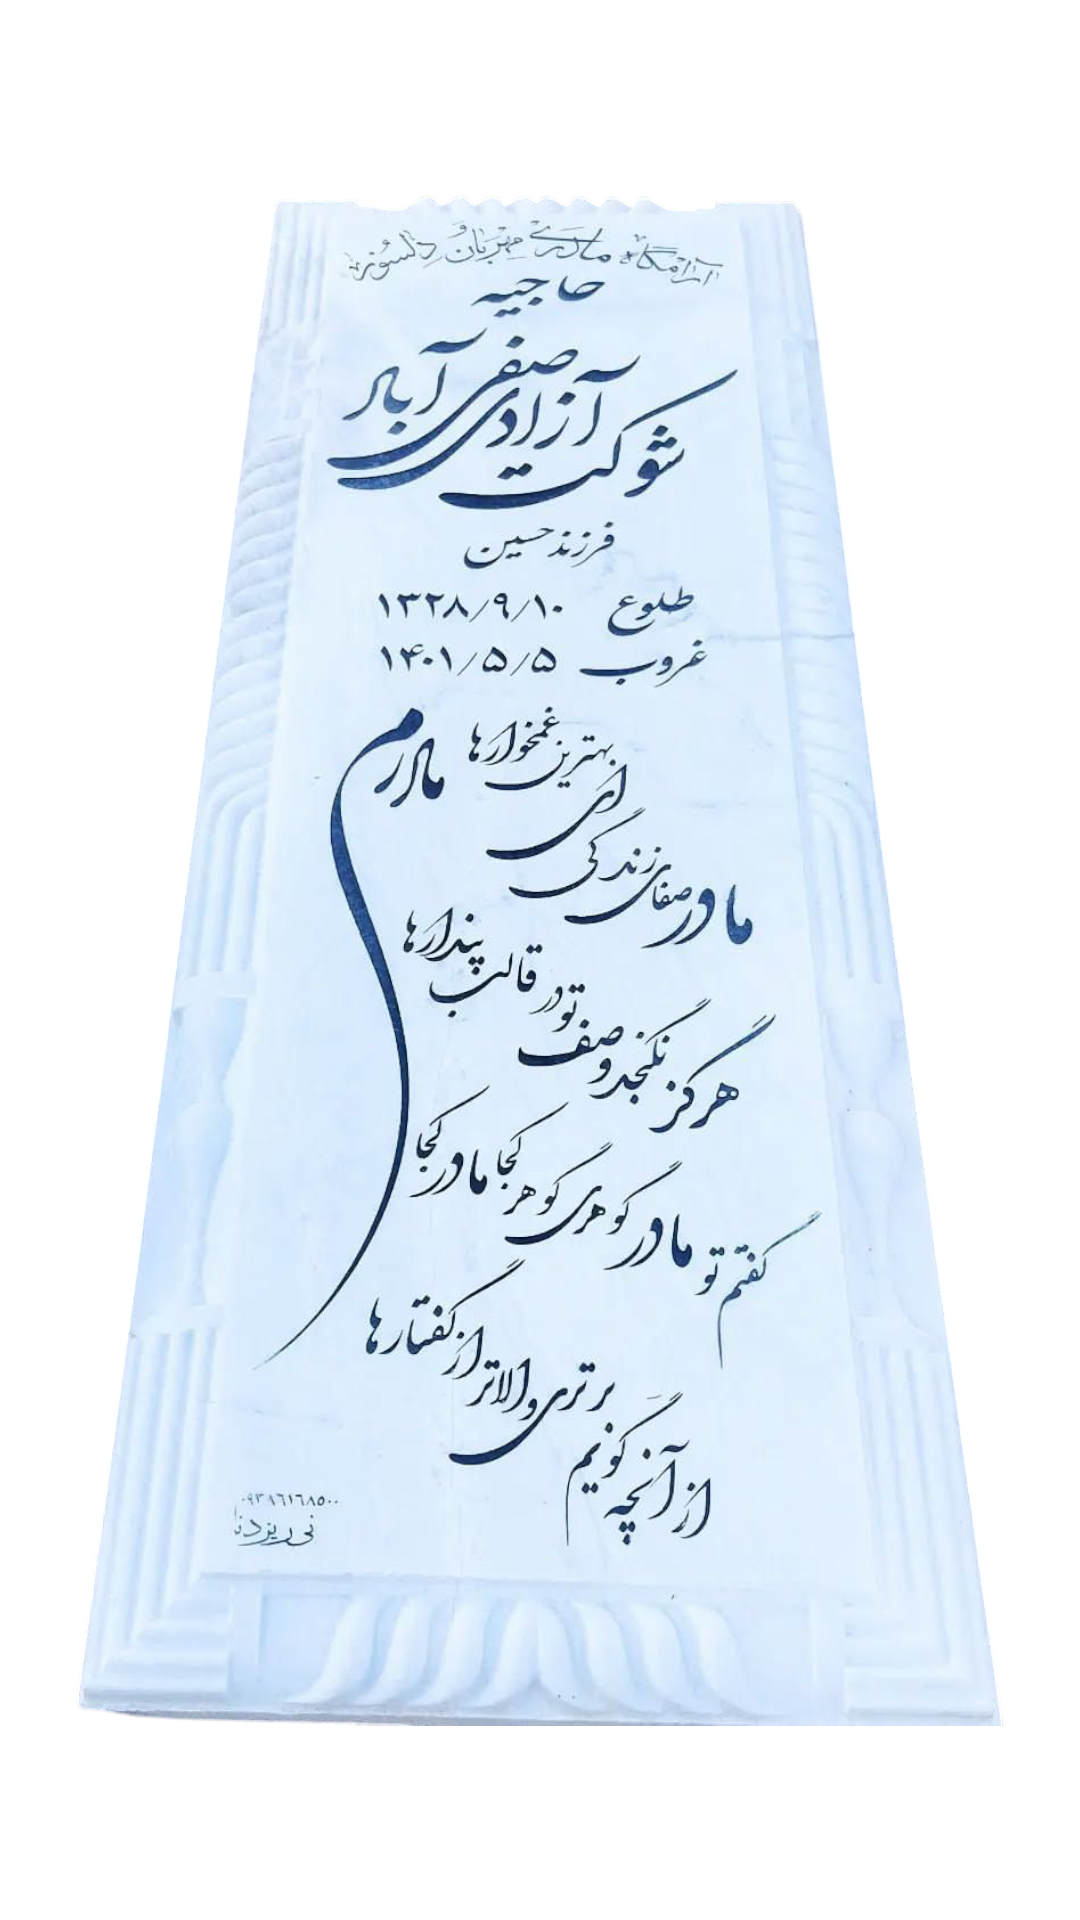 آرامگاه مادری مهربان و دلسوز
حاجیه
شوکت آزادی صفی آباد
فرزند حسین
طلوع ۱۳۲۸/۹/۱۰
غروب ۱۴۰۱/۵/۵
مادرم
مادر صفای زندگی ای بهترین غمخوارها
هرگز نگنجد وصف تو در قالب پندارها
گفتم تو مادر گوهری گوهر کجا مادر کجا
از آنچه گویم برتری والاتر از گفتارها
۰۹۳۸۶۱۶۸۵۰۰
نی ریز دنا